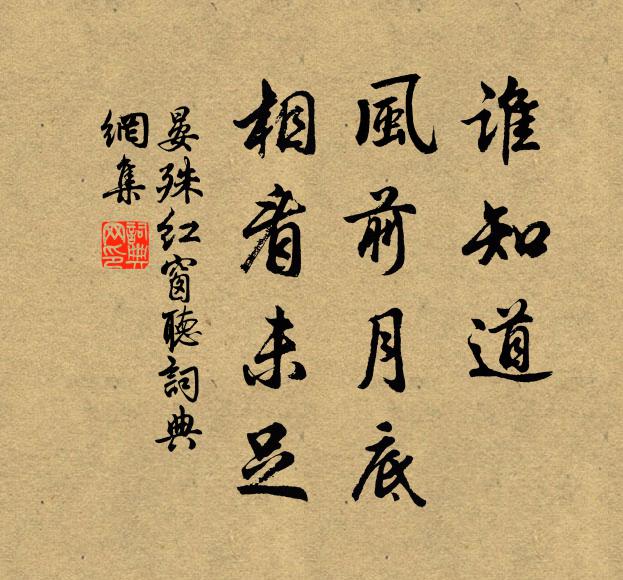 誰知道
風前月底
相看未足
晏殊紅窗聽詞典
網集
詞典
网印